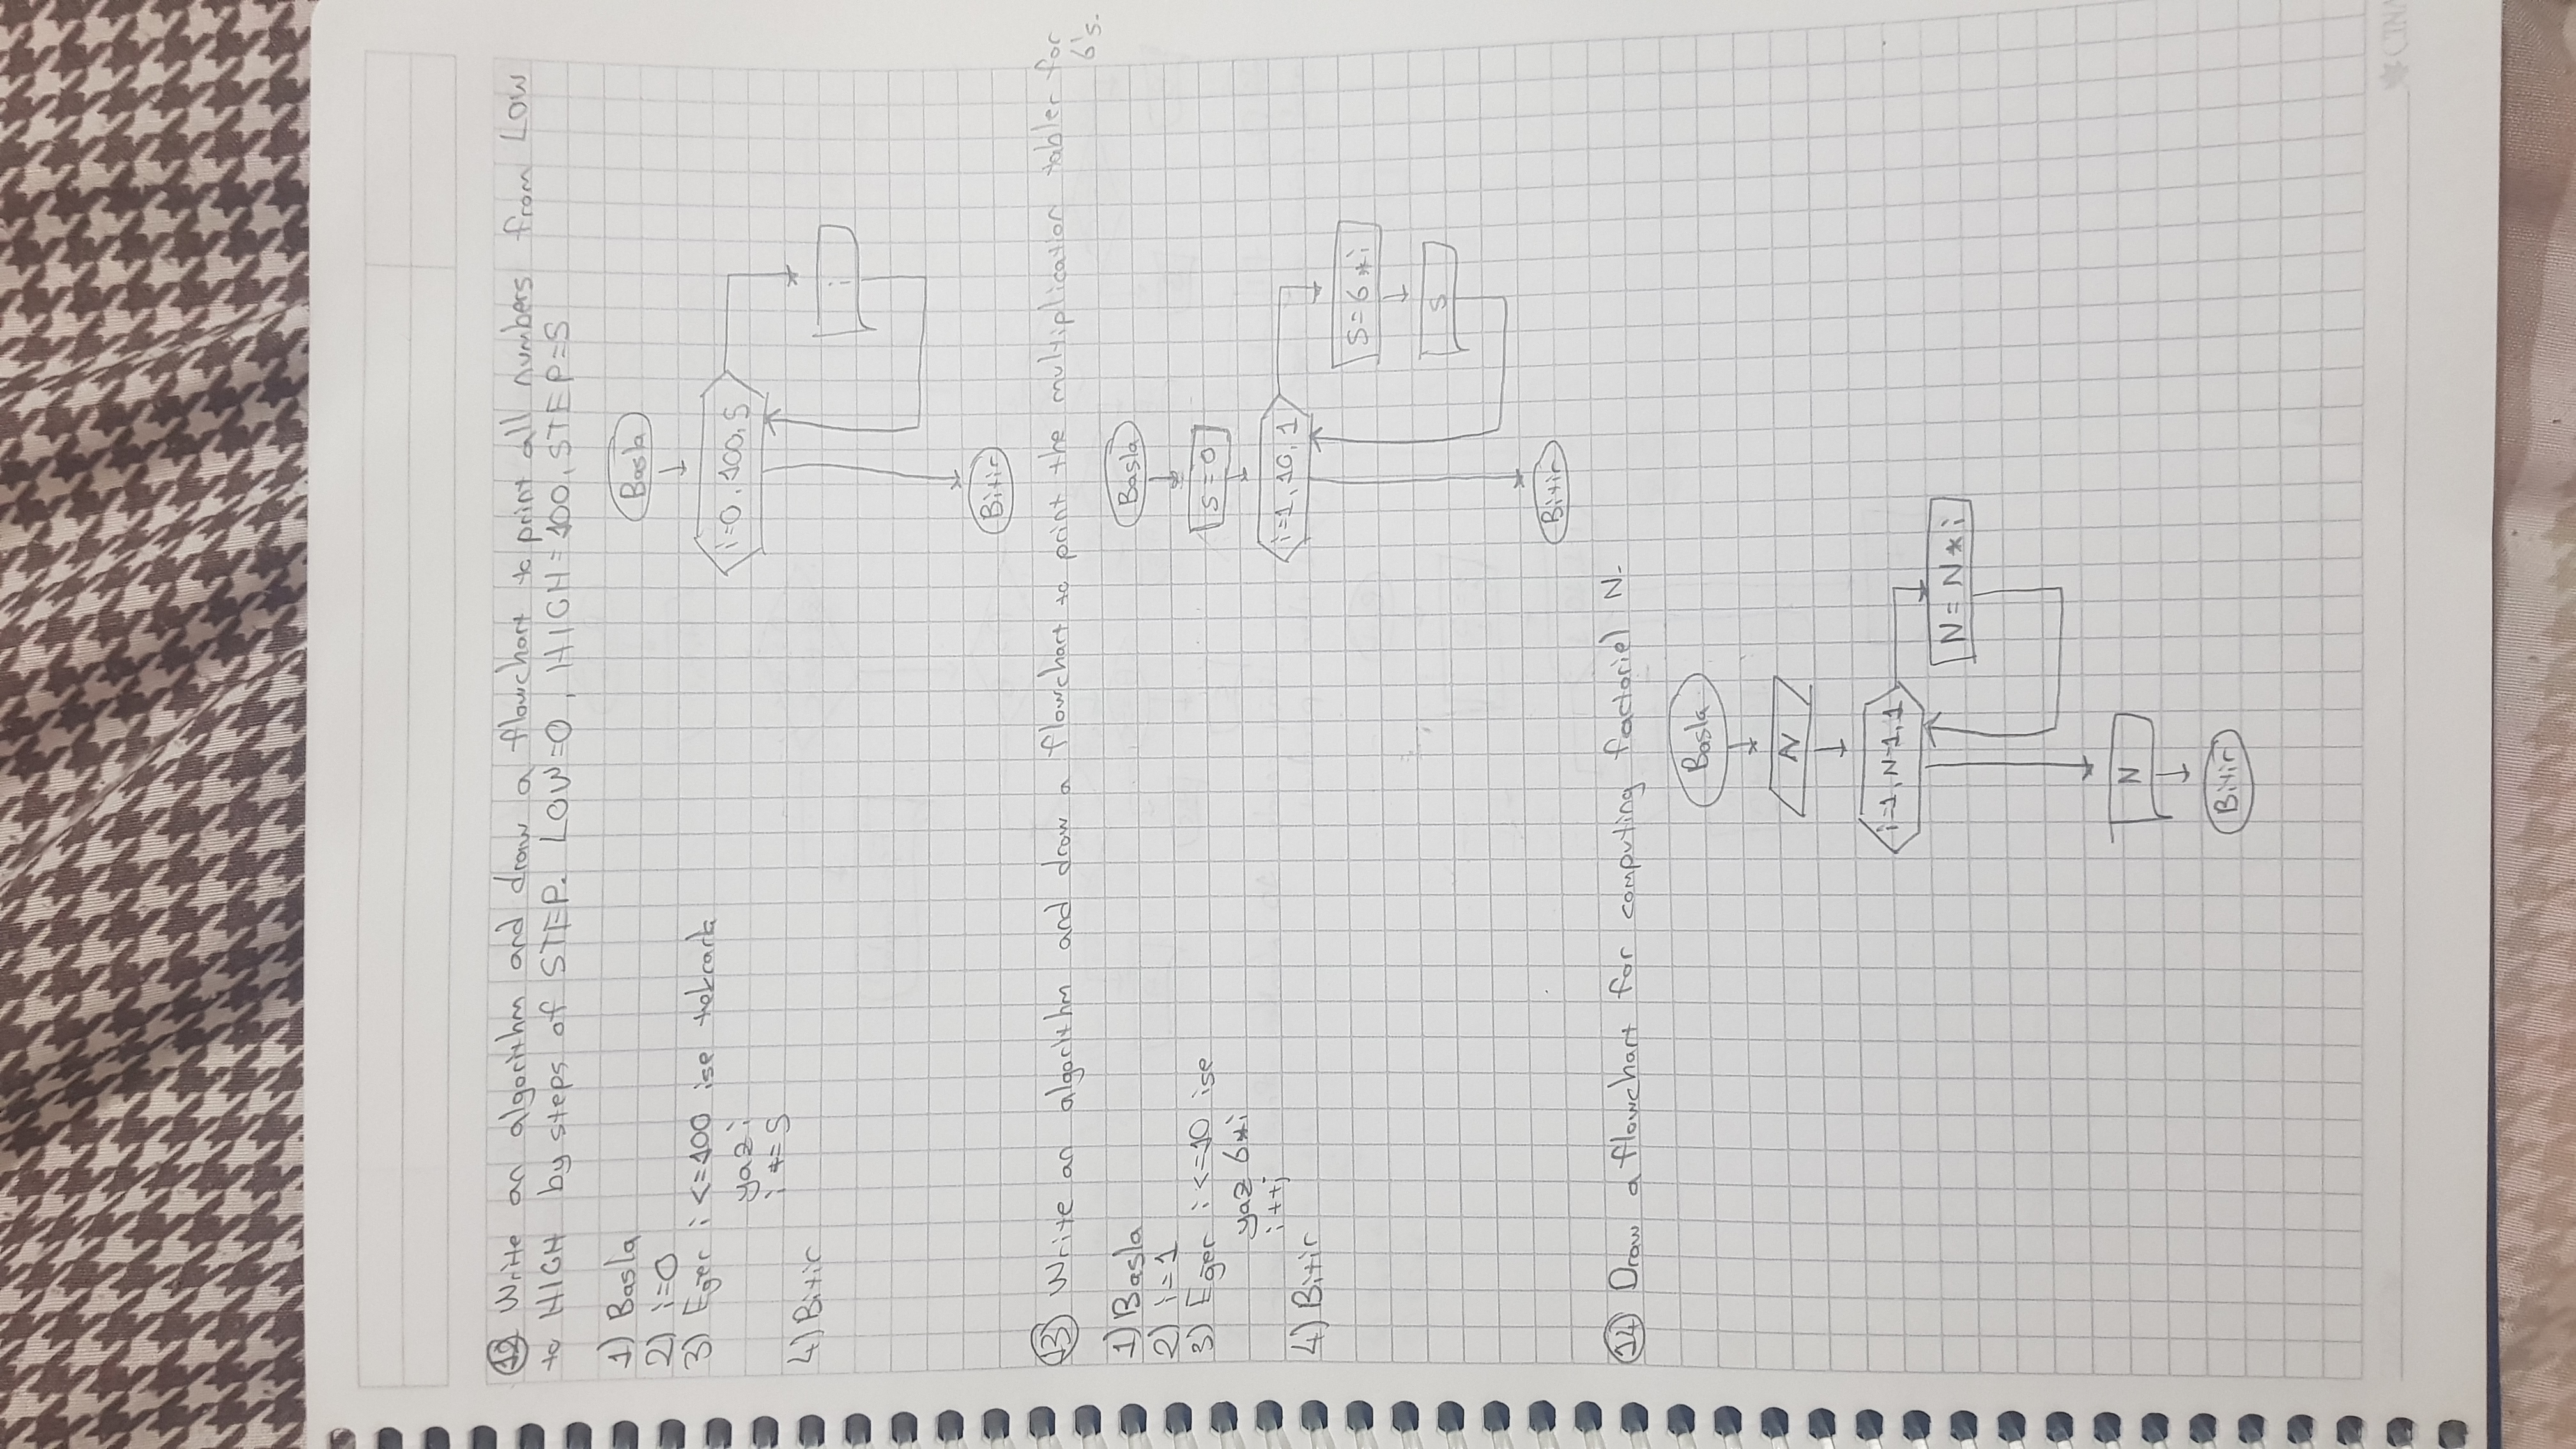 12 Write an algorithm and draw a flowchart to print all numbers from LOW
to HIGH by steps of STEP. LOW=0, HIGH=100, STEP=5
1) Basla
2) i=0
3) Eger i <=100 ise tekrarla
yaz i
i += 5
4) Bitir
Basla
i=0, 100, 5
i
Bitir
13 Write an algorithm and draw a flowchart to print the multiplication tabler for
6's.
1) Basla
2) i=1
3) Eger i <=10 ise
yaz 6*i
i++;
4) Bitir
Basla
S=0
i=1, 10, 1
S=6*i
S
Bitir
14 Draw a flowchart for computing factoriel N.
Basla
N
i=1, N-1, 1
N= N*i
N
Bitir